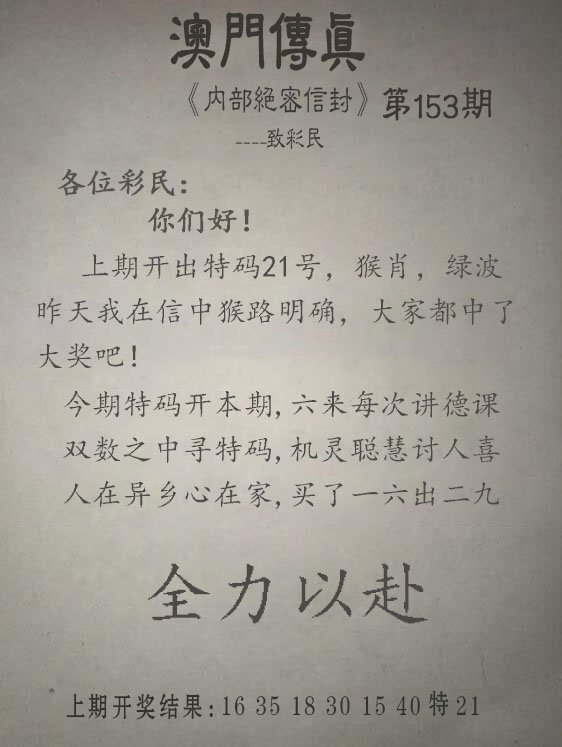 澳門傳眞
《内部絕密信封》第153期
----致彩民
各位彩民：
你们好！
上期开出特码21号，猴肖，绿波
昨天我在信中猴路明确，大家都中了
大奖吧！
今期特码开本期,六来每次讲德课
双数之中寻特码,机灵聪慧讨人喜
人在异乡心在家,买了一六出二九
全力以赴
上期开奖结果:16 35 18 30 15 40 特 21